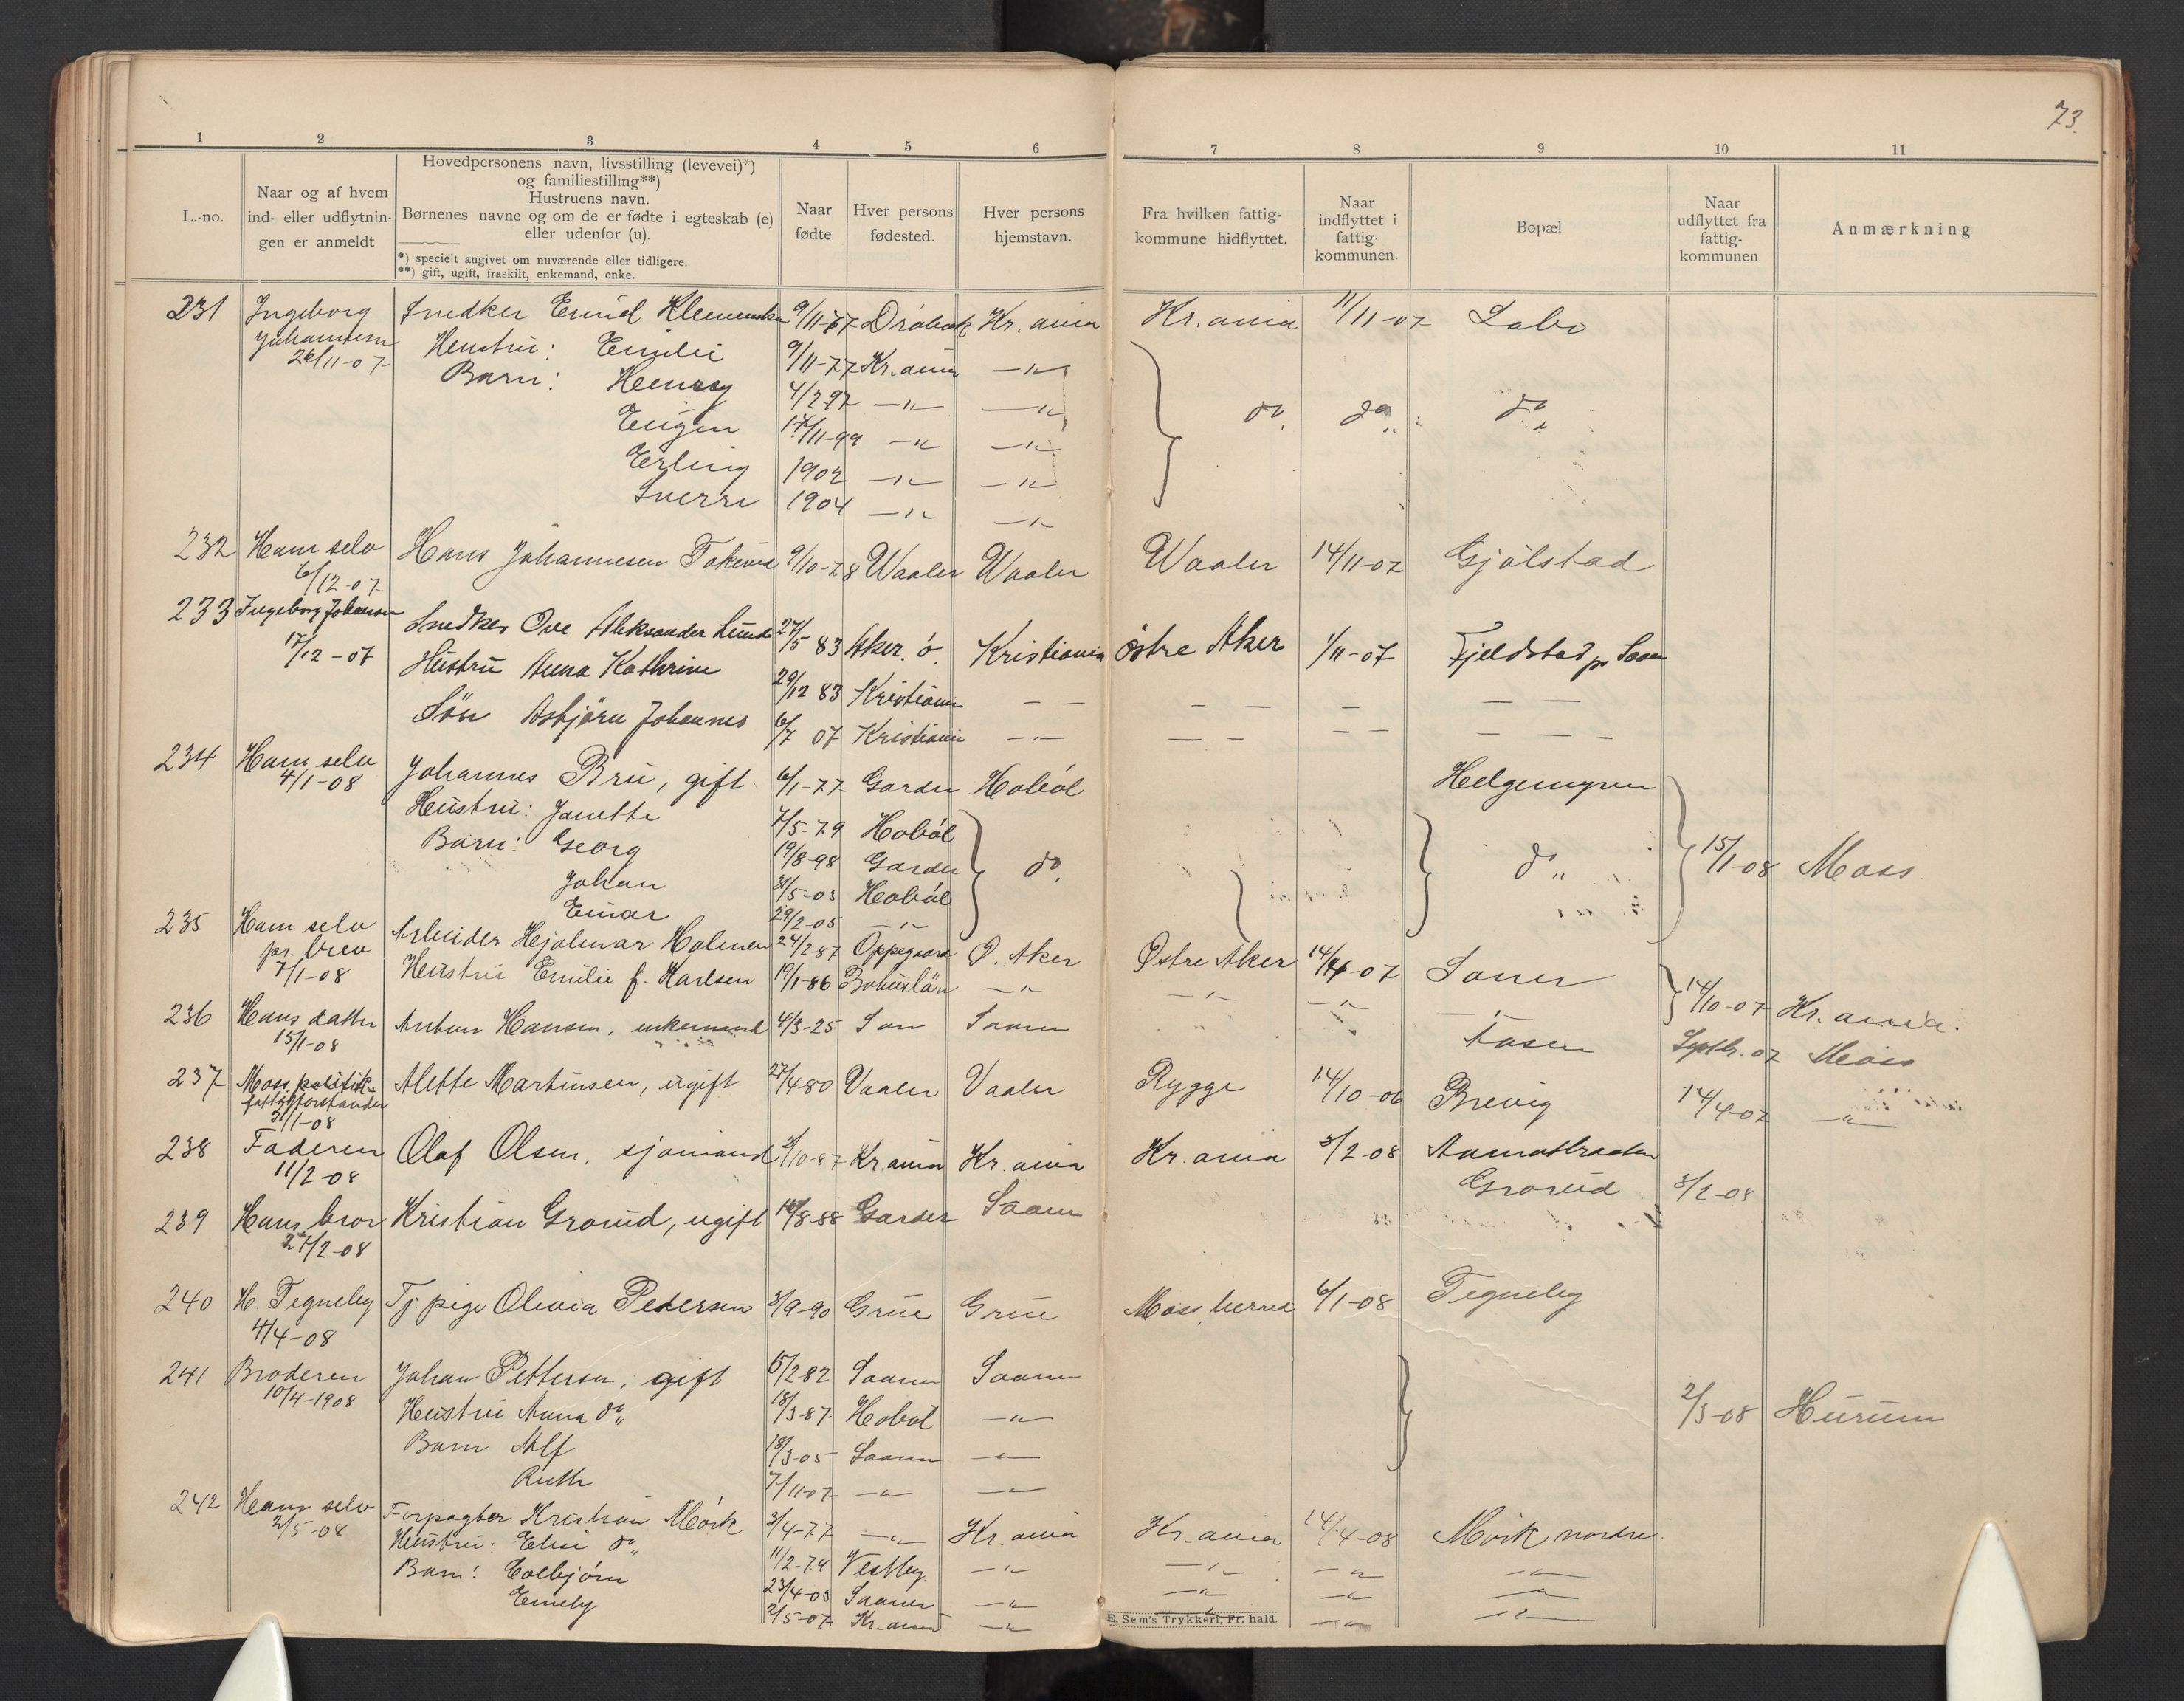 73.
1 2 3 4 5 6 7 8 9 10 11
L.-no.
Naar og af hvem
ind- eller udflytnin-
gen er anmeldt
Hovedpersonens navn, livsstilling (levevei)*)
og familiestilling**)
Hustruens navn.
Børnenes navne og om de er fødte i egteskab (e)
eller udenfor (u).
*) specielt angivet om nuværende eller tidligere.
**) gift, ugift, fraskilt, enkemand, enke.
Naar
fødte
Hver persons
fødested.
Hver persons
hjemstavn.
Fra hvilken fattig-
kommune hidflyttet.
Naar
indflyttet i
fattig-
kommunen.
Bopæl
Naar
udflyttet fra
fattig-
kommunen
Anmærkning
231 Ingeborg Snedker Emil 9/11-77 Drøbak Kr.ania Kr.ania 11/11-07 Labo
Johansen Hustru: Emilie 9/11-77 Kr.ania —"—
26/11-07 Barn: Henry 4/2 97 —"— —"— do. do " do "
Eugen 17/11-99 —"— —"—
Erling 1902 —"— —"—
Sverre 1904 —"— —"—
232 Ham selv Hans Johannesen 9/10-78 Waaler Waaler Waaler 14/11-07 Gjølstad
6/12-07
233 Ingeborg Johansen Snedker Ove Aleksander Lunde 27/5 83 Aker. ø. Kristiania østre Aker 1/11-07 Fjeldstad pr Saan
17/12-07 Hustru Anna Kathrine 29/12 83 Kristiania — — — — — — —
Søn Asbjørn Johannes 6/7 07 Kristiania —"— — — — — — — —
234 Ham selv Johannes Bru, gift 6/1-77 Garder Hobøl Helgemyren
4/1-08 Hustru: Janette 7/5-79 Hobøl
Barn: Georg 19/8-98 Garder do. do " 15/1-08 Moss.
Johan 31/5-03 Hobøl
Einar 29/2-05 —"—
235 Ham selv Arbeider Hjalmar Holmen 24/2 87 Oppegaard Ø. Aker Østre Aker 14/4-07 Soner
pr. brev Hustru Emilie f. Karlsen 19/1-86 Bohuslän —"— —"— —"— —"— 14/10-07 Kr.ania.
7/1-08
236 Hans datter Anton Hansen, enkemand 4/3-25 Son Saaner Aasen Septb. 07 Moss
15/1-08
237 Moss politik- Alette Martinsen, ugift 27/4 80 Vaaler Vaaler Rygge 14/10-06 Brevig 14/4-07 —"—
fattigforstander
31/1-08
238 Faderen Olaf Olsen, sjømand 2/10-87 Kr.ania Kr.ania Kr.ania 3/2-08
11/2-08
239 Hans bror Kristian Grorud, ugift 16/8-88 Garder Saaner Grorud 3/2-08
27/2-08
240 H. Tegneby Tj. pige Olivia Pedersen 3/9-90 Grue Grue Moss herred 6/1-08 Tegneby
4/4-08
241 Broderen Johan Pettersen, gift 15/2 82 Saaner Saaner
10/4-1908 Hustru Anna do " 18/3-87 Hobøl —"— 2/3-08 Hurum
Barn Alf 18/3-05 Saaner —"—
Ruth 7/11-07 —"— —"—
242 Ham selv Forpagter Kristian Mørk 3/4-77 —"— Kr.ania Kr.ania 14/4-08 Mørk nordre.
2/5-08 Hustru: Elise do " 11/2-79 Vestby. —"— —"— —"— —"—
Barn: Colbjørn 23/4-03 Saaner —"— —"— —"— —"—
Emely 2/5-07 Kr.ania —"— —"— —"— —"—
E. Sem's Trykkeri, Fr. hald.